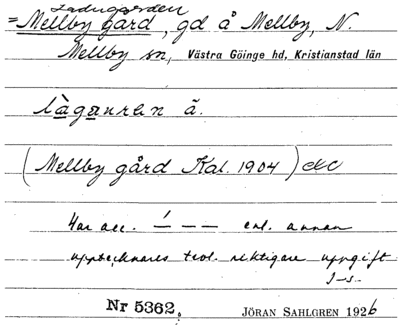 Ladugården
= Mellby gård, gd å Mellby, N.
Mellby sn, Västra Göinge hd, Kristianstad län
làganrən ā.
(Mellby gård Kal. 1904) etc
Har acc. –́ – – enl. annan
upptecknares trol. riktigare uppgift
J–s.
Nr 5362. JÖRAN SAHLGREN 1926